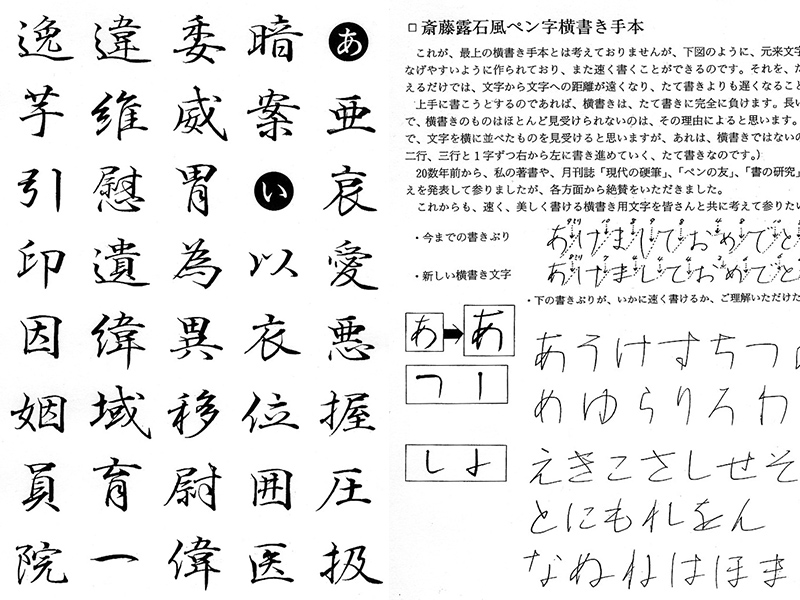 あ亜哀愛悪握圧扱
暗案い以衣位囲医
委威胃為異移尉偉
違維慰遺緯域育一
逸芋引印因姻員院
□ 斎藤露石風ペン字横書き手本
これが、最上の横書き手本とは考えておりませんが、下図のように、元来文字
なげやすいように作られており、また速く書くことができるのです。それを、た
えるだけでは、文字から文字への距離が遠くなり、たて書きよりも遅くなること
上手に書こうとするのであれば、横書きは、たて書きに完全に負けます。長い
で、横書きのものはほとんど見受けられないのは、その理由によると思います。
で、文字を横に並べたものを見受けると思いますが、あれは、横書きではないの
二行、三行と1字ずつ右から左に書き進めていく、たて書きなのです。)
20数年前から、私の著書や、月刊誌「現代の硬筆」、「ペンの友」、「書の研究」
えを発表して参りましたが、各方面から絶賛をいただきました。
これからも、速く、美しく書ける横書き用文字を皆さんと共に考えて参りたい
・今までの書きぶり あけましておめでと
・新しい横書き文字 あけましておめでと
・下の書きぶりが、いかに速く書けるか、ご理解いただけた
あ あ
あうけすちつ
めゆらりろわ
し よ
えきこさしせそ
とにもれをん
なぬねはほま